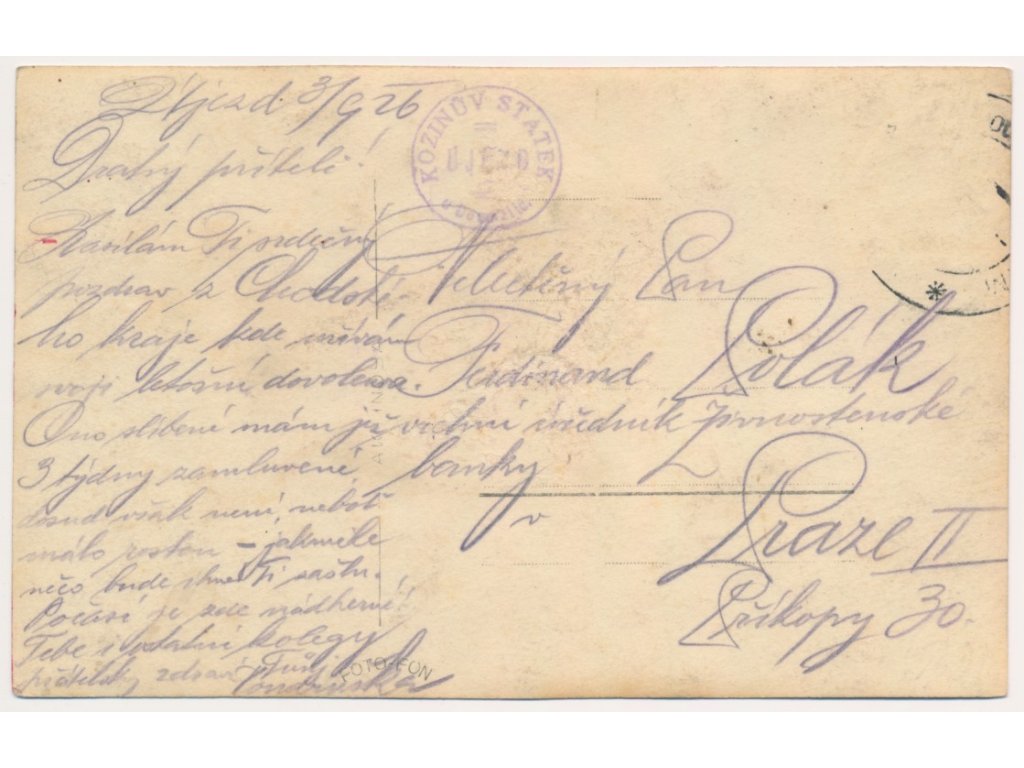 Újezd 3/9 26
Drahý příteli!
Zasílám Ti srdečný
pozdrav z Chodské-
ho kraje kde trávím
svoji letošní dovolenou.
Ono slíbené mám již
3 týdny zamluvené,
dosud však není, neboť
málo rostou – jakmile
něco bude ihned Ti zašlu.
Počasí je zde nádherné!
Tebe i ostatní kolegy
přátelsky zdraví Tvůj
KOZINŮV STATEK
ÚJEZD
u Domažlic
Velectěný Pan
Ferdinand Polák
vrchní úředník Živnostenské
banky
v
Praze II
Příkopy 30.
FOTO-FON